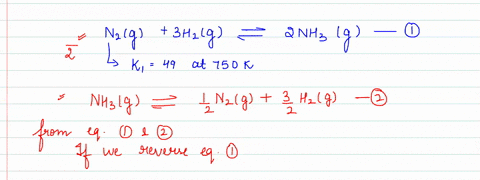 = N₂(g) + 3H₂(g) ⇌ 2NH₃ (g) — ①
2
↳ K₁ = 49 at 750 K
= NH₃(g) ⇌ 1/2 N₂(g) + 3/2 H₂(g) — ②
from eq. ① & ②
If we reverse eq. ①